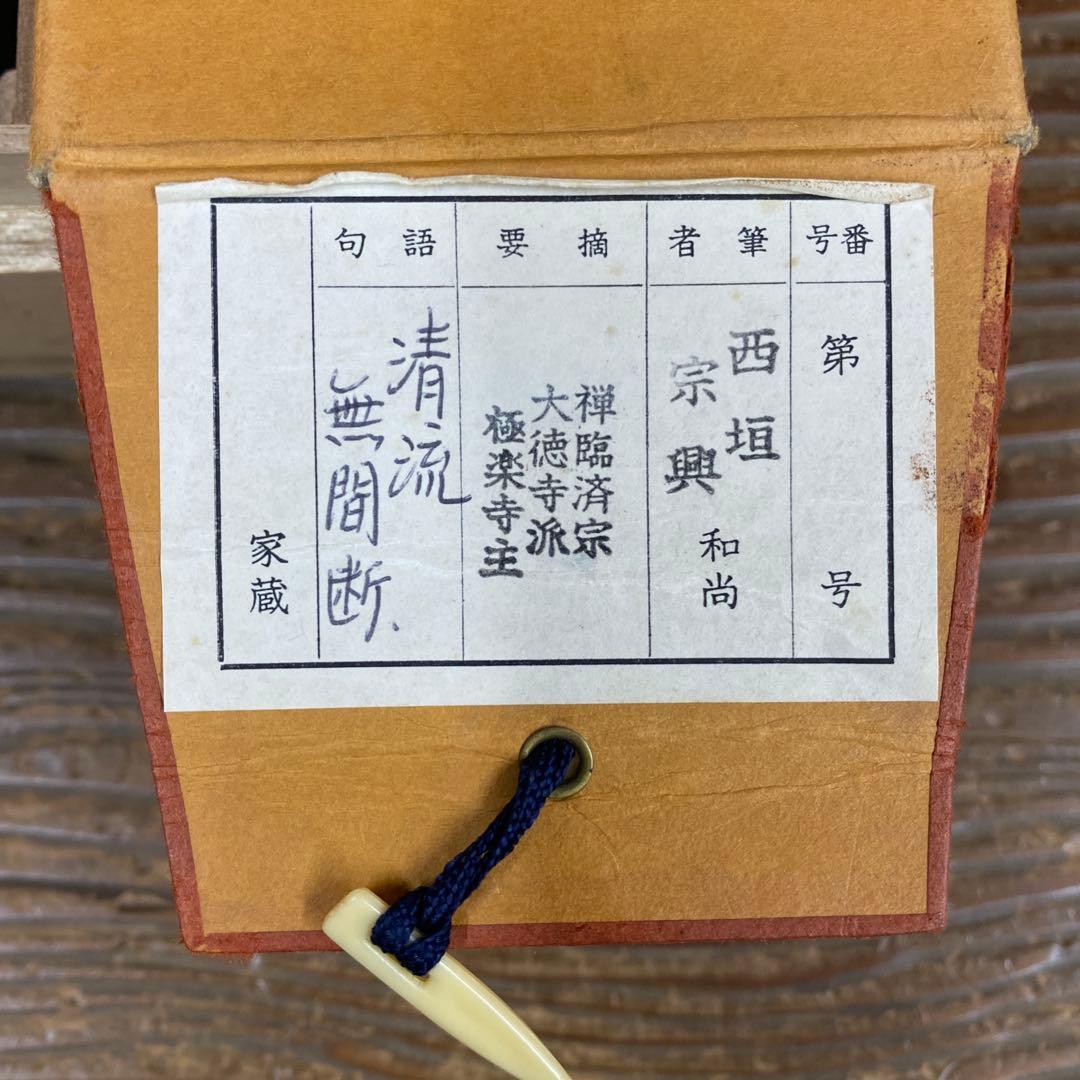 番号
第 号
筆者
西垣
宗興
和尚
摘要
禅臨済宗
大徳寺派
極楽寺主
語句
清流
無間断、
家蔵